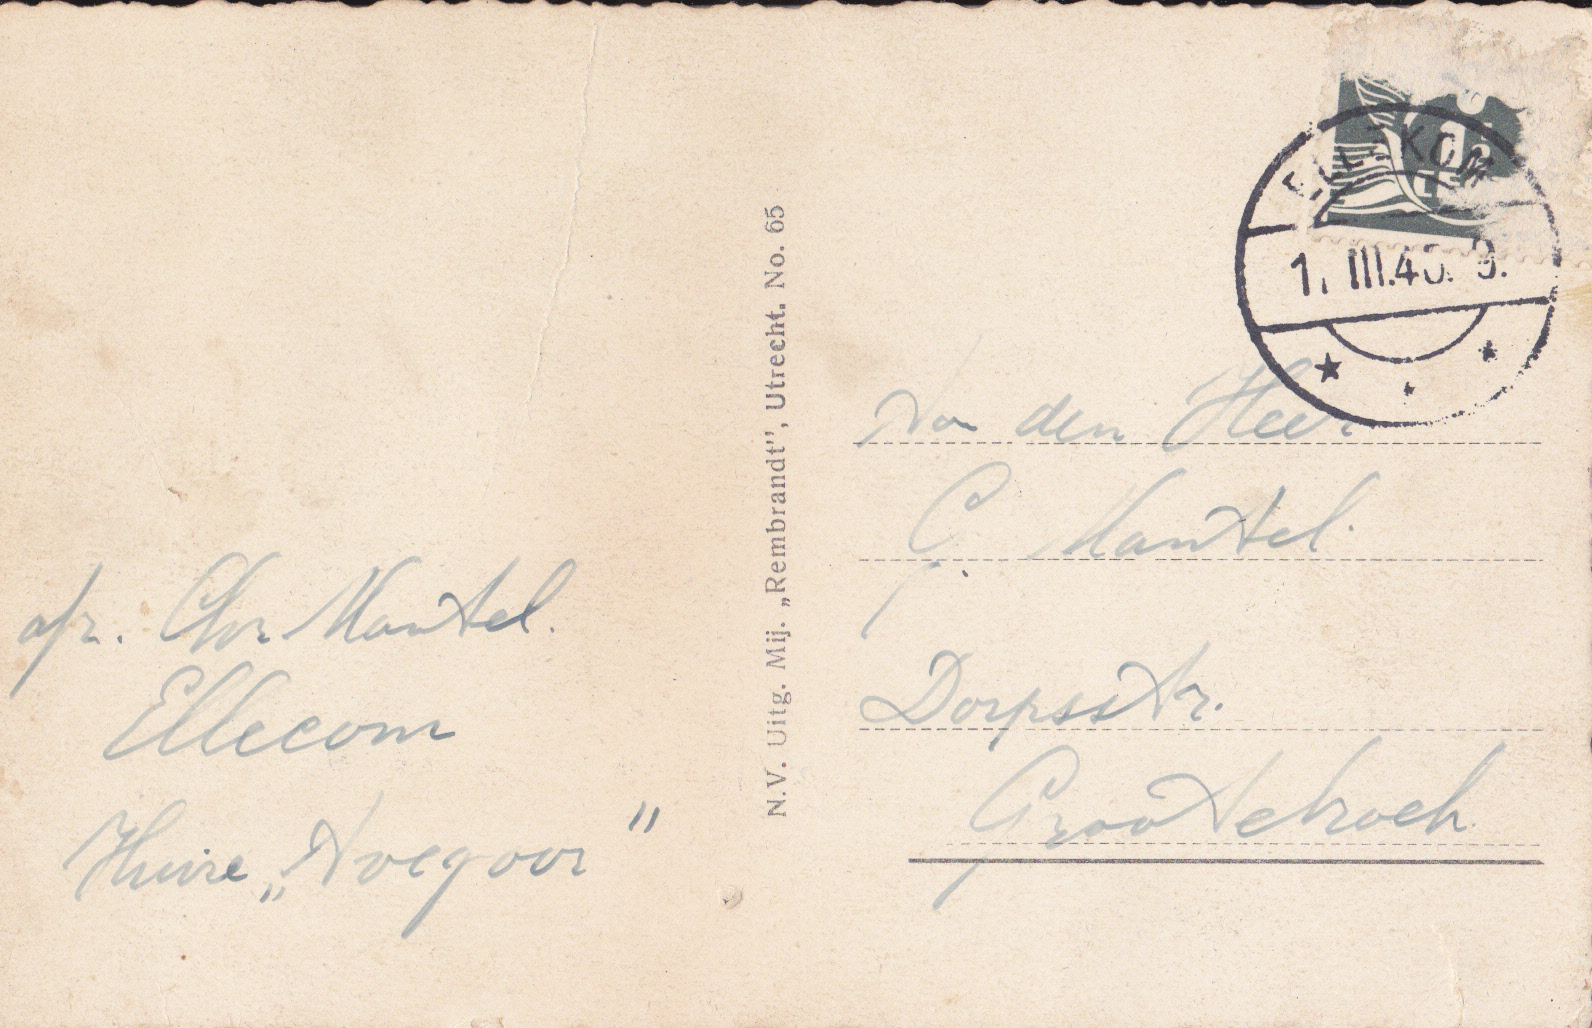 afz. Chr Mantel.
Ellecom
Huize „Avegoor"
N.V. Uitg. Mij. „Rembrandt", Utrecht. No. 65
ELLEKOM
1. III.4
den Heer
G. Mantel.
Dorpsstr.
Grootebroek